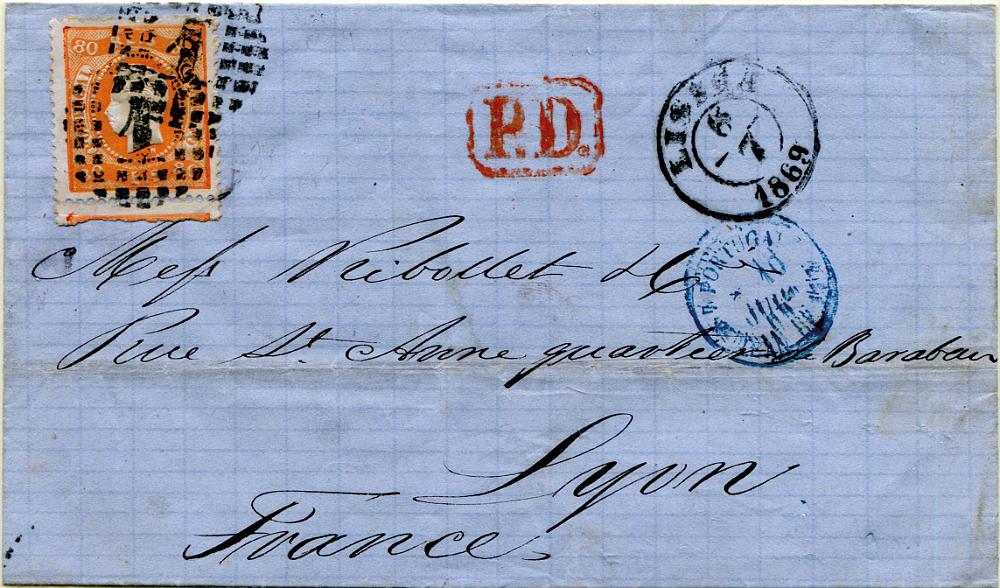 80
1
P.D.
LISBOA
6
7
1869
PORTUGAL
10
JUIL
Mess Ribollet & Cie
Rue St. Anne quartier de Baraban
Lyon
France